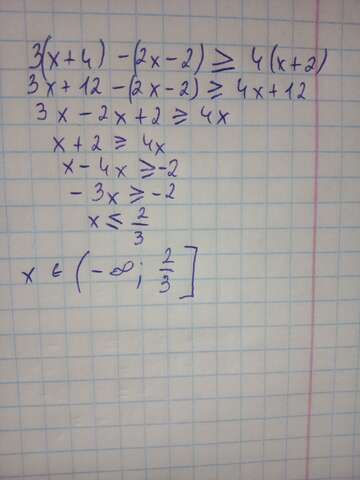 3(x+4) - (2x-2) ≥ 4(x+2)
3x+12 - (2x-2) ≥ 4x+12
3x - 2x + 2 ≥ 4x
x + 2 ≥ 4x
x - 4x ≥ -2
- 3x ≥ -2
x ≤ 2/3
x ∈ (-∞; 2/3]